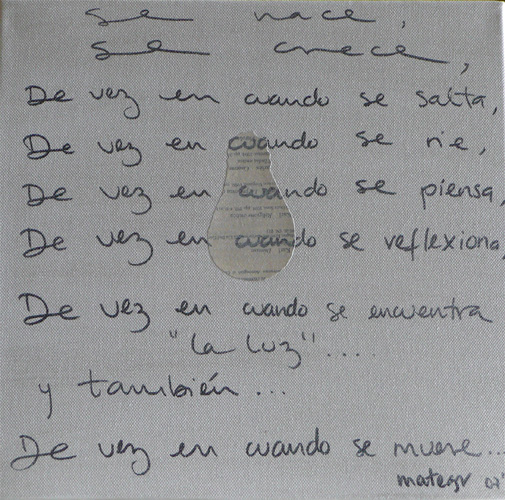 se nace,
se crece,
De vez en cuando se salta,
De vez en cuando se ríe,
De vez en cuando se piensa,
De vez en cuando se reflexiona,
De vez en cuando se encuentra
"La Luz"....
y también...
De vez en cuando se muere...